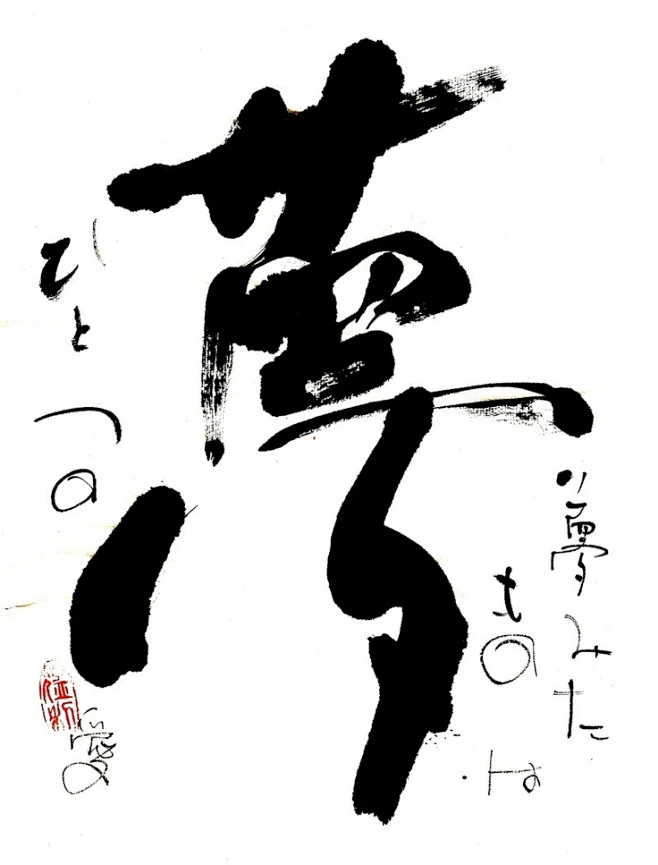 夢みた
ものは
夢
ひとつの愛